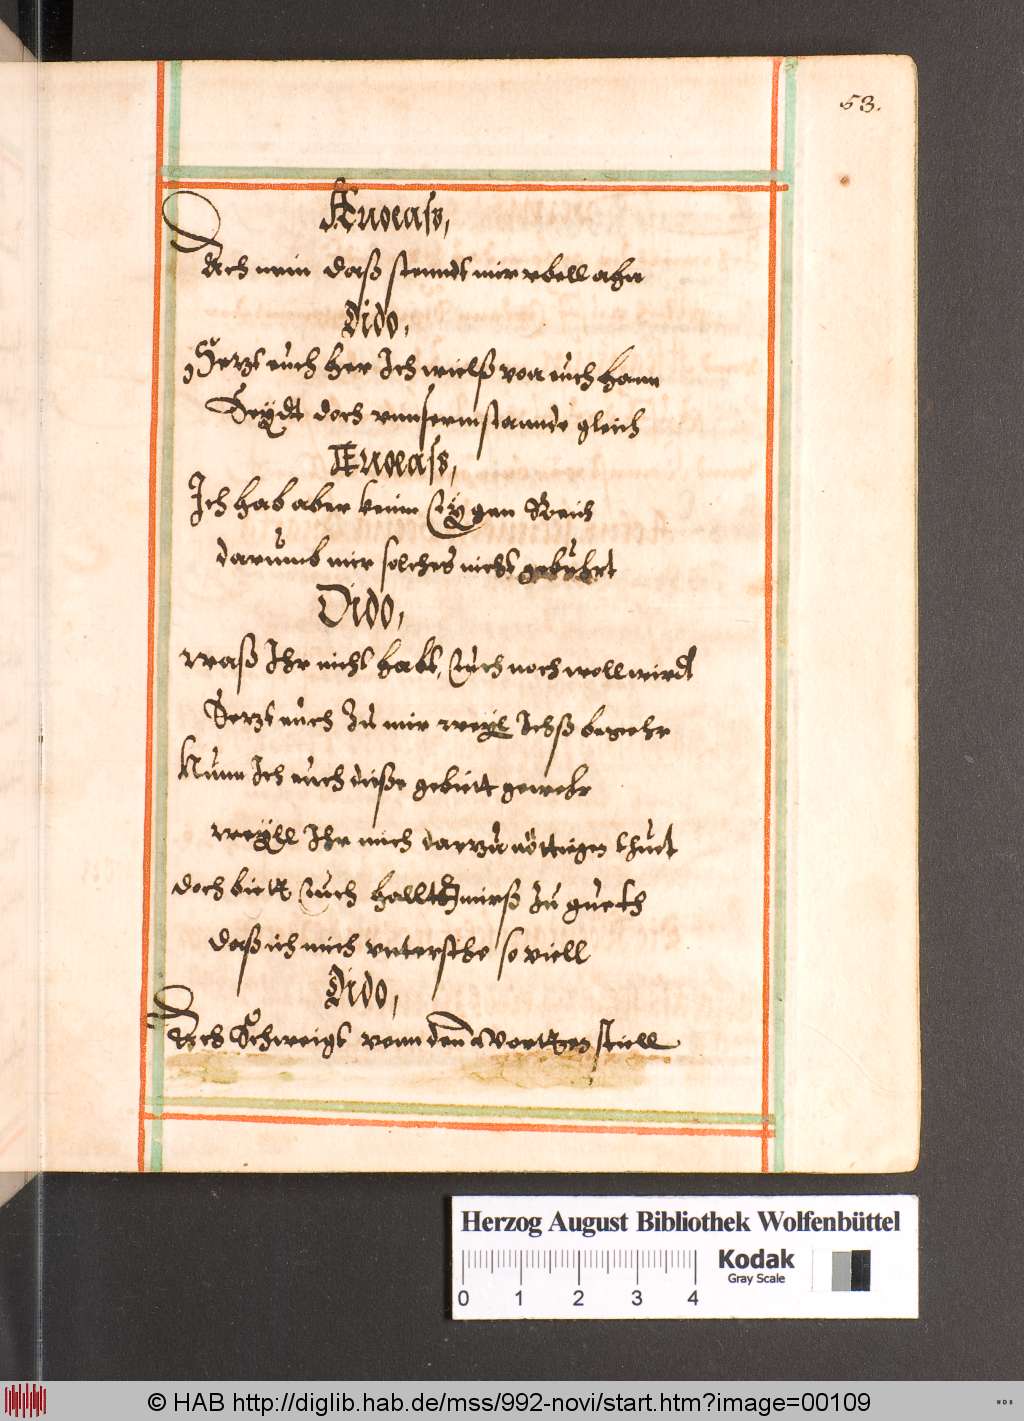 53.
Aeneass,
Ach nein daß stenndt mir vbell ahn
Dido,
Setzt euch her Ich wielß von euch hann
Seydt doch vnnserm stannde gleich
Aeneass,
Ich hab aber kein Eygen Reich
darumb mir solches nicht gebührt
Dido,
Waß Ihr nicht habt, Euch noch woll wirdt
Setzt euch Zu mir weyl Ichß begehr
Nunn Ich euch dieße gebiett gewehr
weyll Ihr mich darzu nöttigen thut
doch biett Euch hallth mirß Zu gueth
daß ich mich vntersthe so viell
Dido,
Ach Schweigt venn den Wortten stiell
Herzog August Bibliothek Wolfenbüttel
0 1 2 3 4
Kodak
Gray Scale
© HAB http://diglib.hab.de/mss/992-novi/start.htm?image=00109